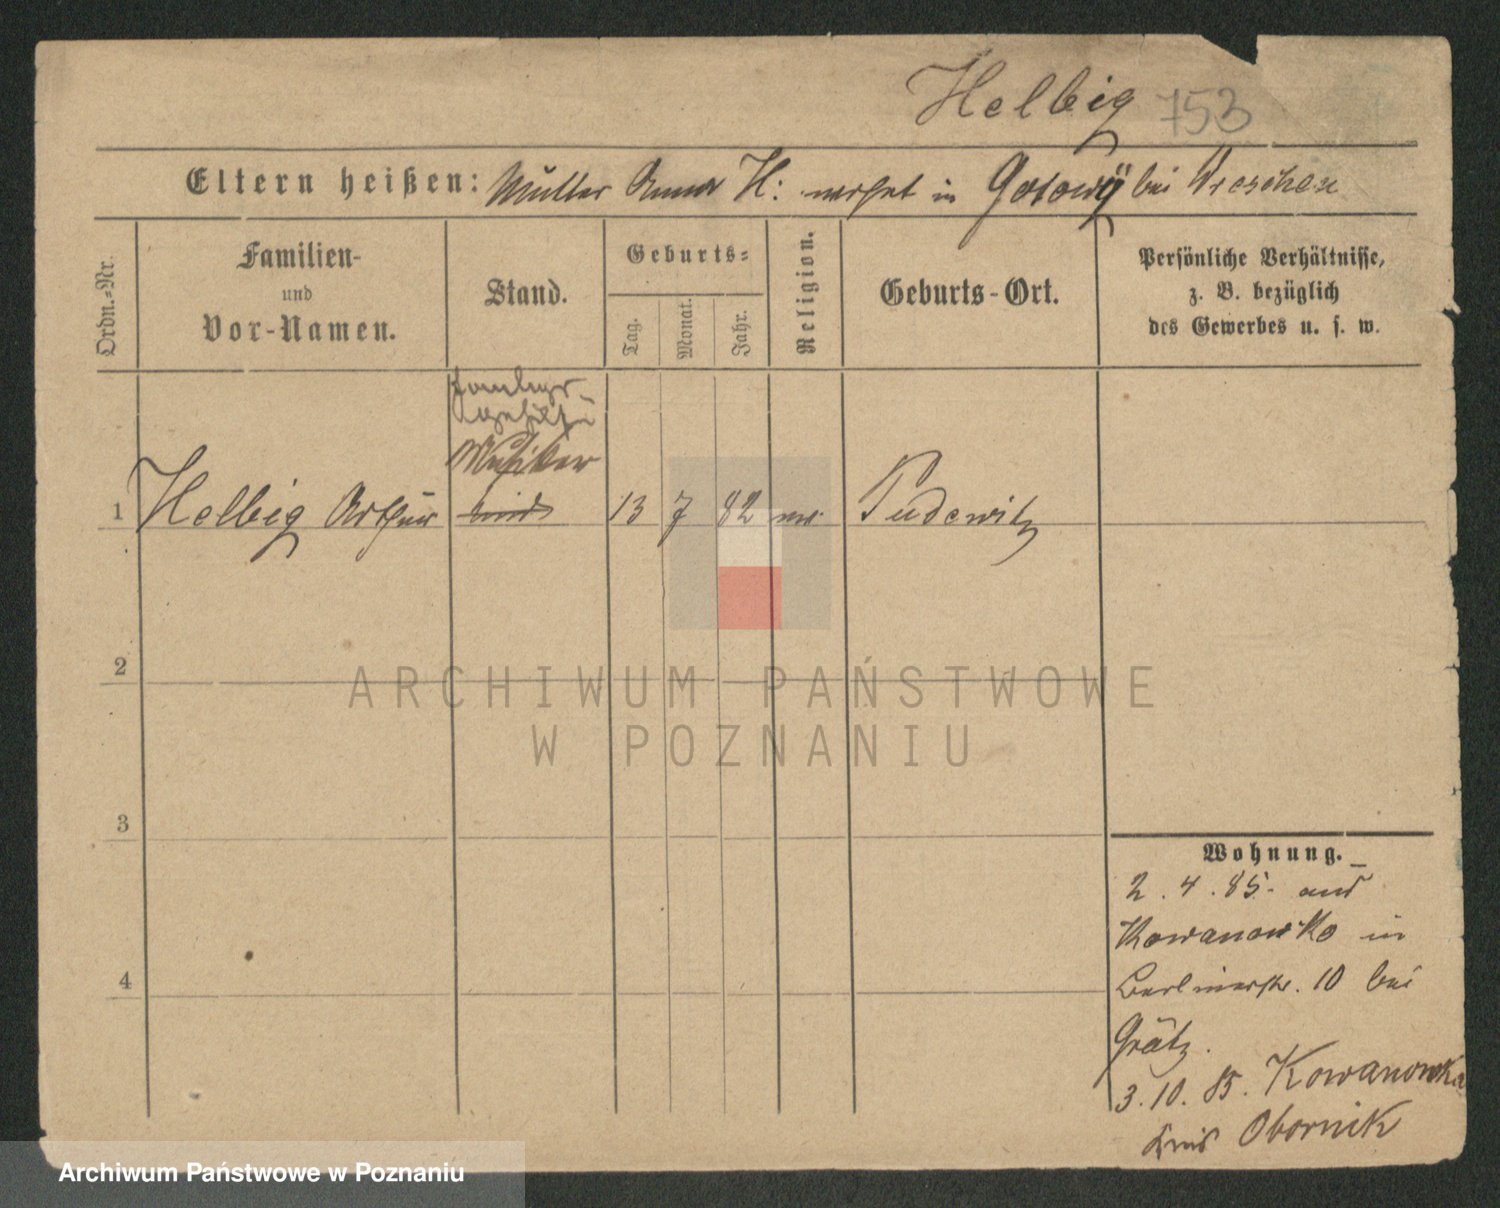 Helbig 753
Eltern heißen: Mutter Anna H: wohnt in Gotowÿ bei Wreschen
Ordn.-Nr.
Familien-
und
Vor-Namen.
Stand.
Geburts-
Tag.
Monat.
Jahr.
Religion.
Geburts-Ort.
Persönliche Verhältnisse,
z. B. bezüglich
des Gewerbes u. s. w.
Musiker
1 Helbig Arthur 13 7 82 Pudewitz
2
3
4
Wohnung.
2.4.85. aus
Kowanowko in
Berlinerstr. 10 bei
Grätz.
3.10.85. Kowanowko
Kreis Obornik
ARCHIWUM PAŃSTWOWE
W POZNANIU
Archiwum Państwowe w Poznaniu